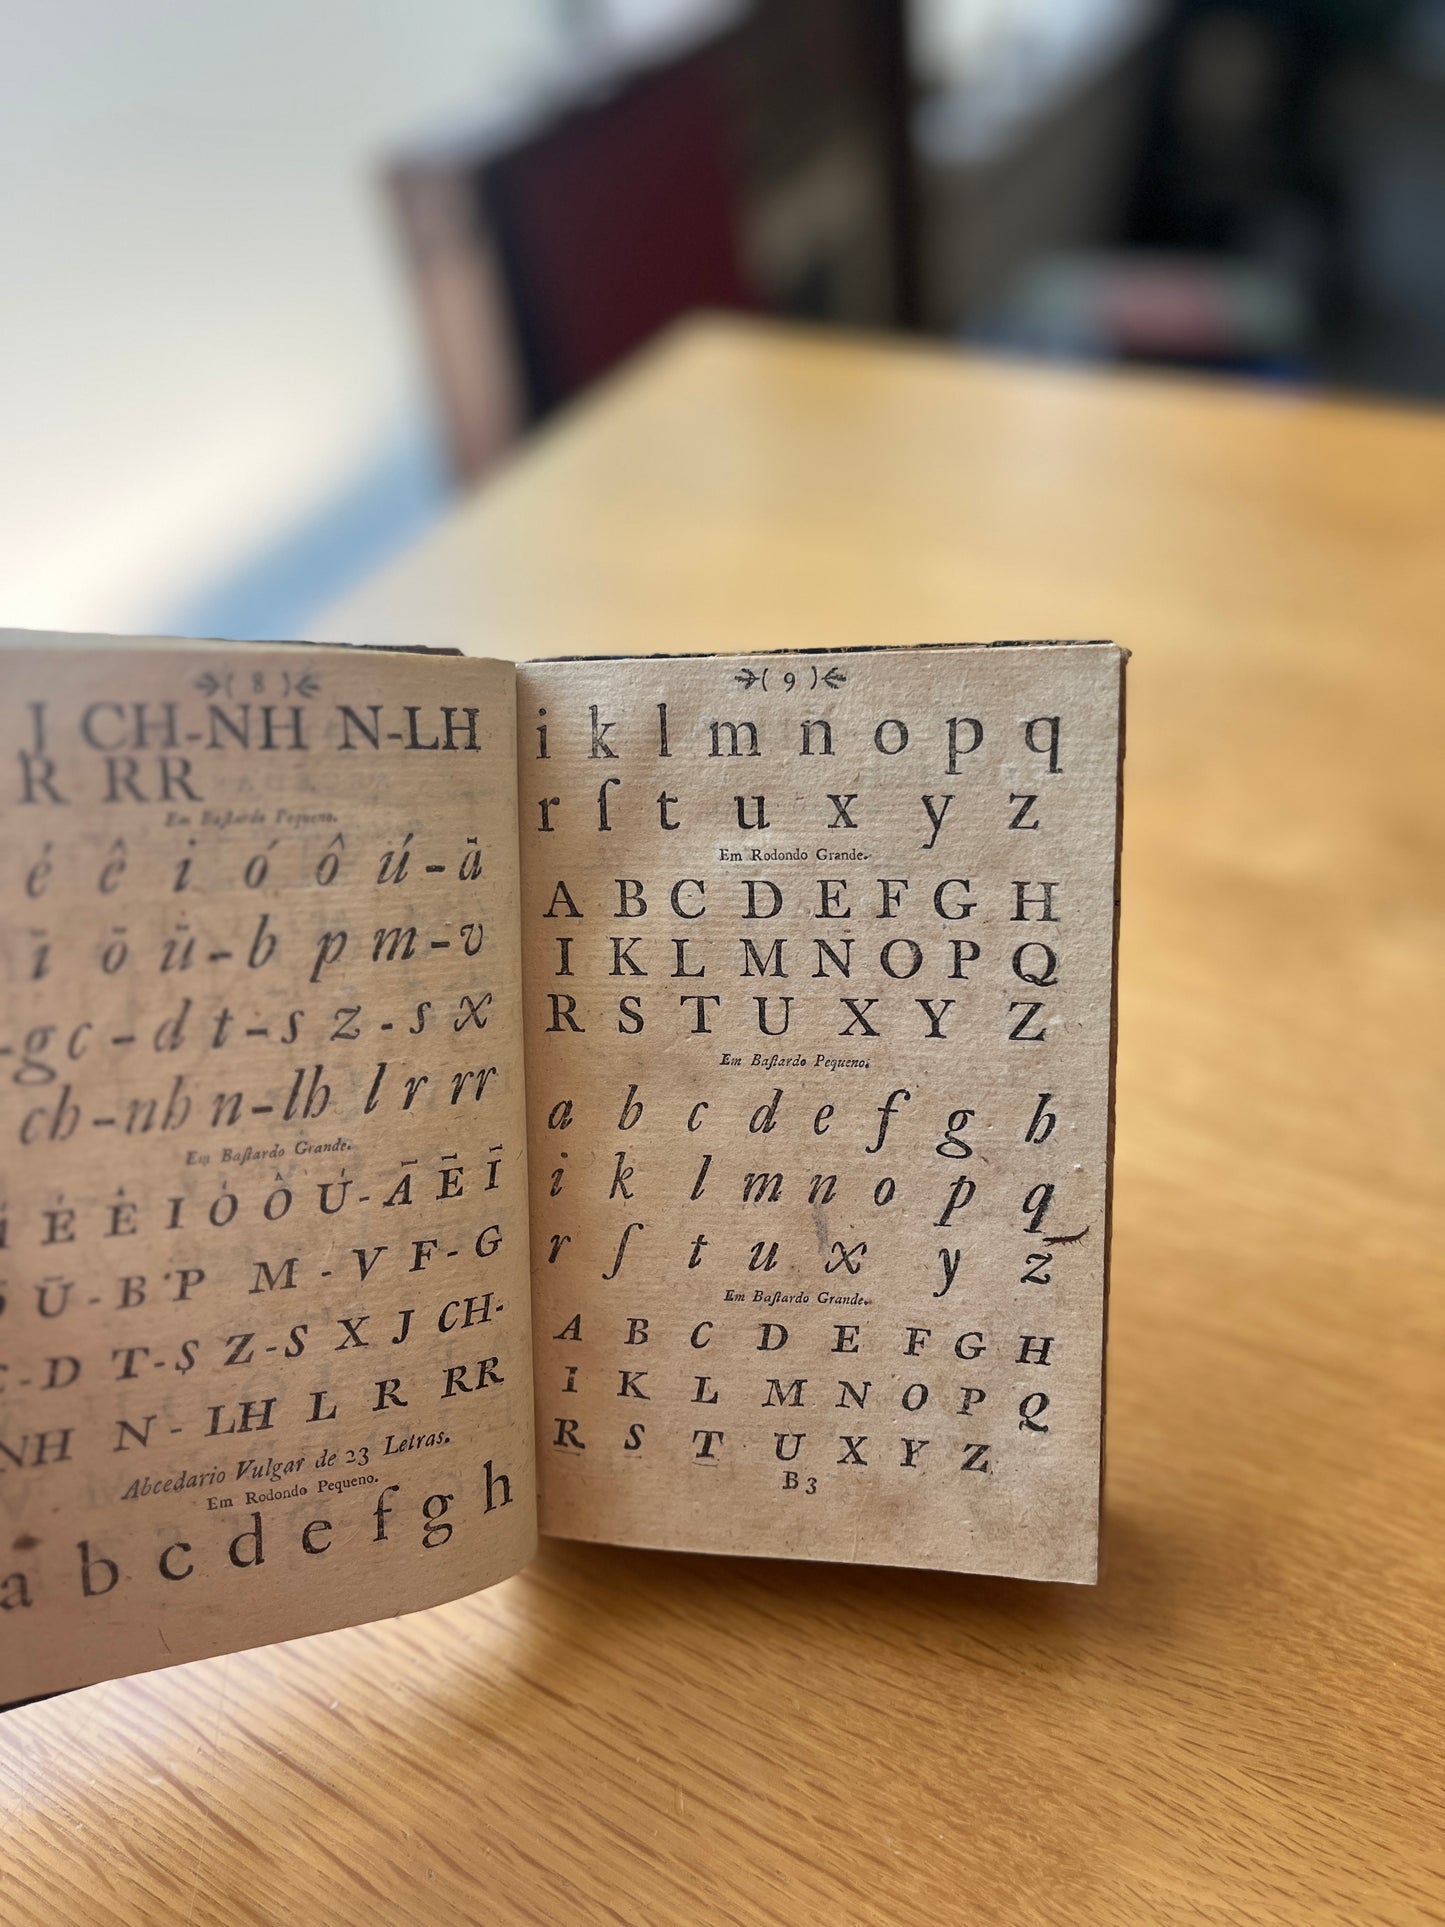 ( 8 )
J CH-NH N-LH
R RR
Em Baſtardo Pequeno.
é ê i ó ô ú - ã
ĩ õ ũ - b p m - v
- g c - d t - s z - s x
ch - nh n - lh l r rr
Em Baſtardo Grande.
É Ê I Ó Ô Ú - Ã Ẽ Ĩ
Ũ - B P M - V F - G
- D T - S Z - S X J CH-
NH N - LH L R RR
Abcedario Vulgar de 23 Letras.
Em Rodondo Pequeno.
a b c d e f g h
( 9 )
i k l m n o p q
r ſ t u x y z
Em Rodondo Grande.
A B C D E F G H
I K L M N O P Q
R S T U X Y Z
Em Baſtardo Pequeno.
a b c d e f g h
i k l m n o p q
r ſ t u x y z
Em Baſtardo Grande.
A B C D E F G H
I K L M N O P Q
R S T U X Y Z
B 3